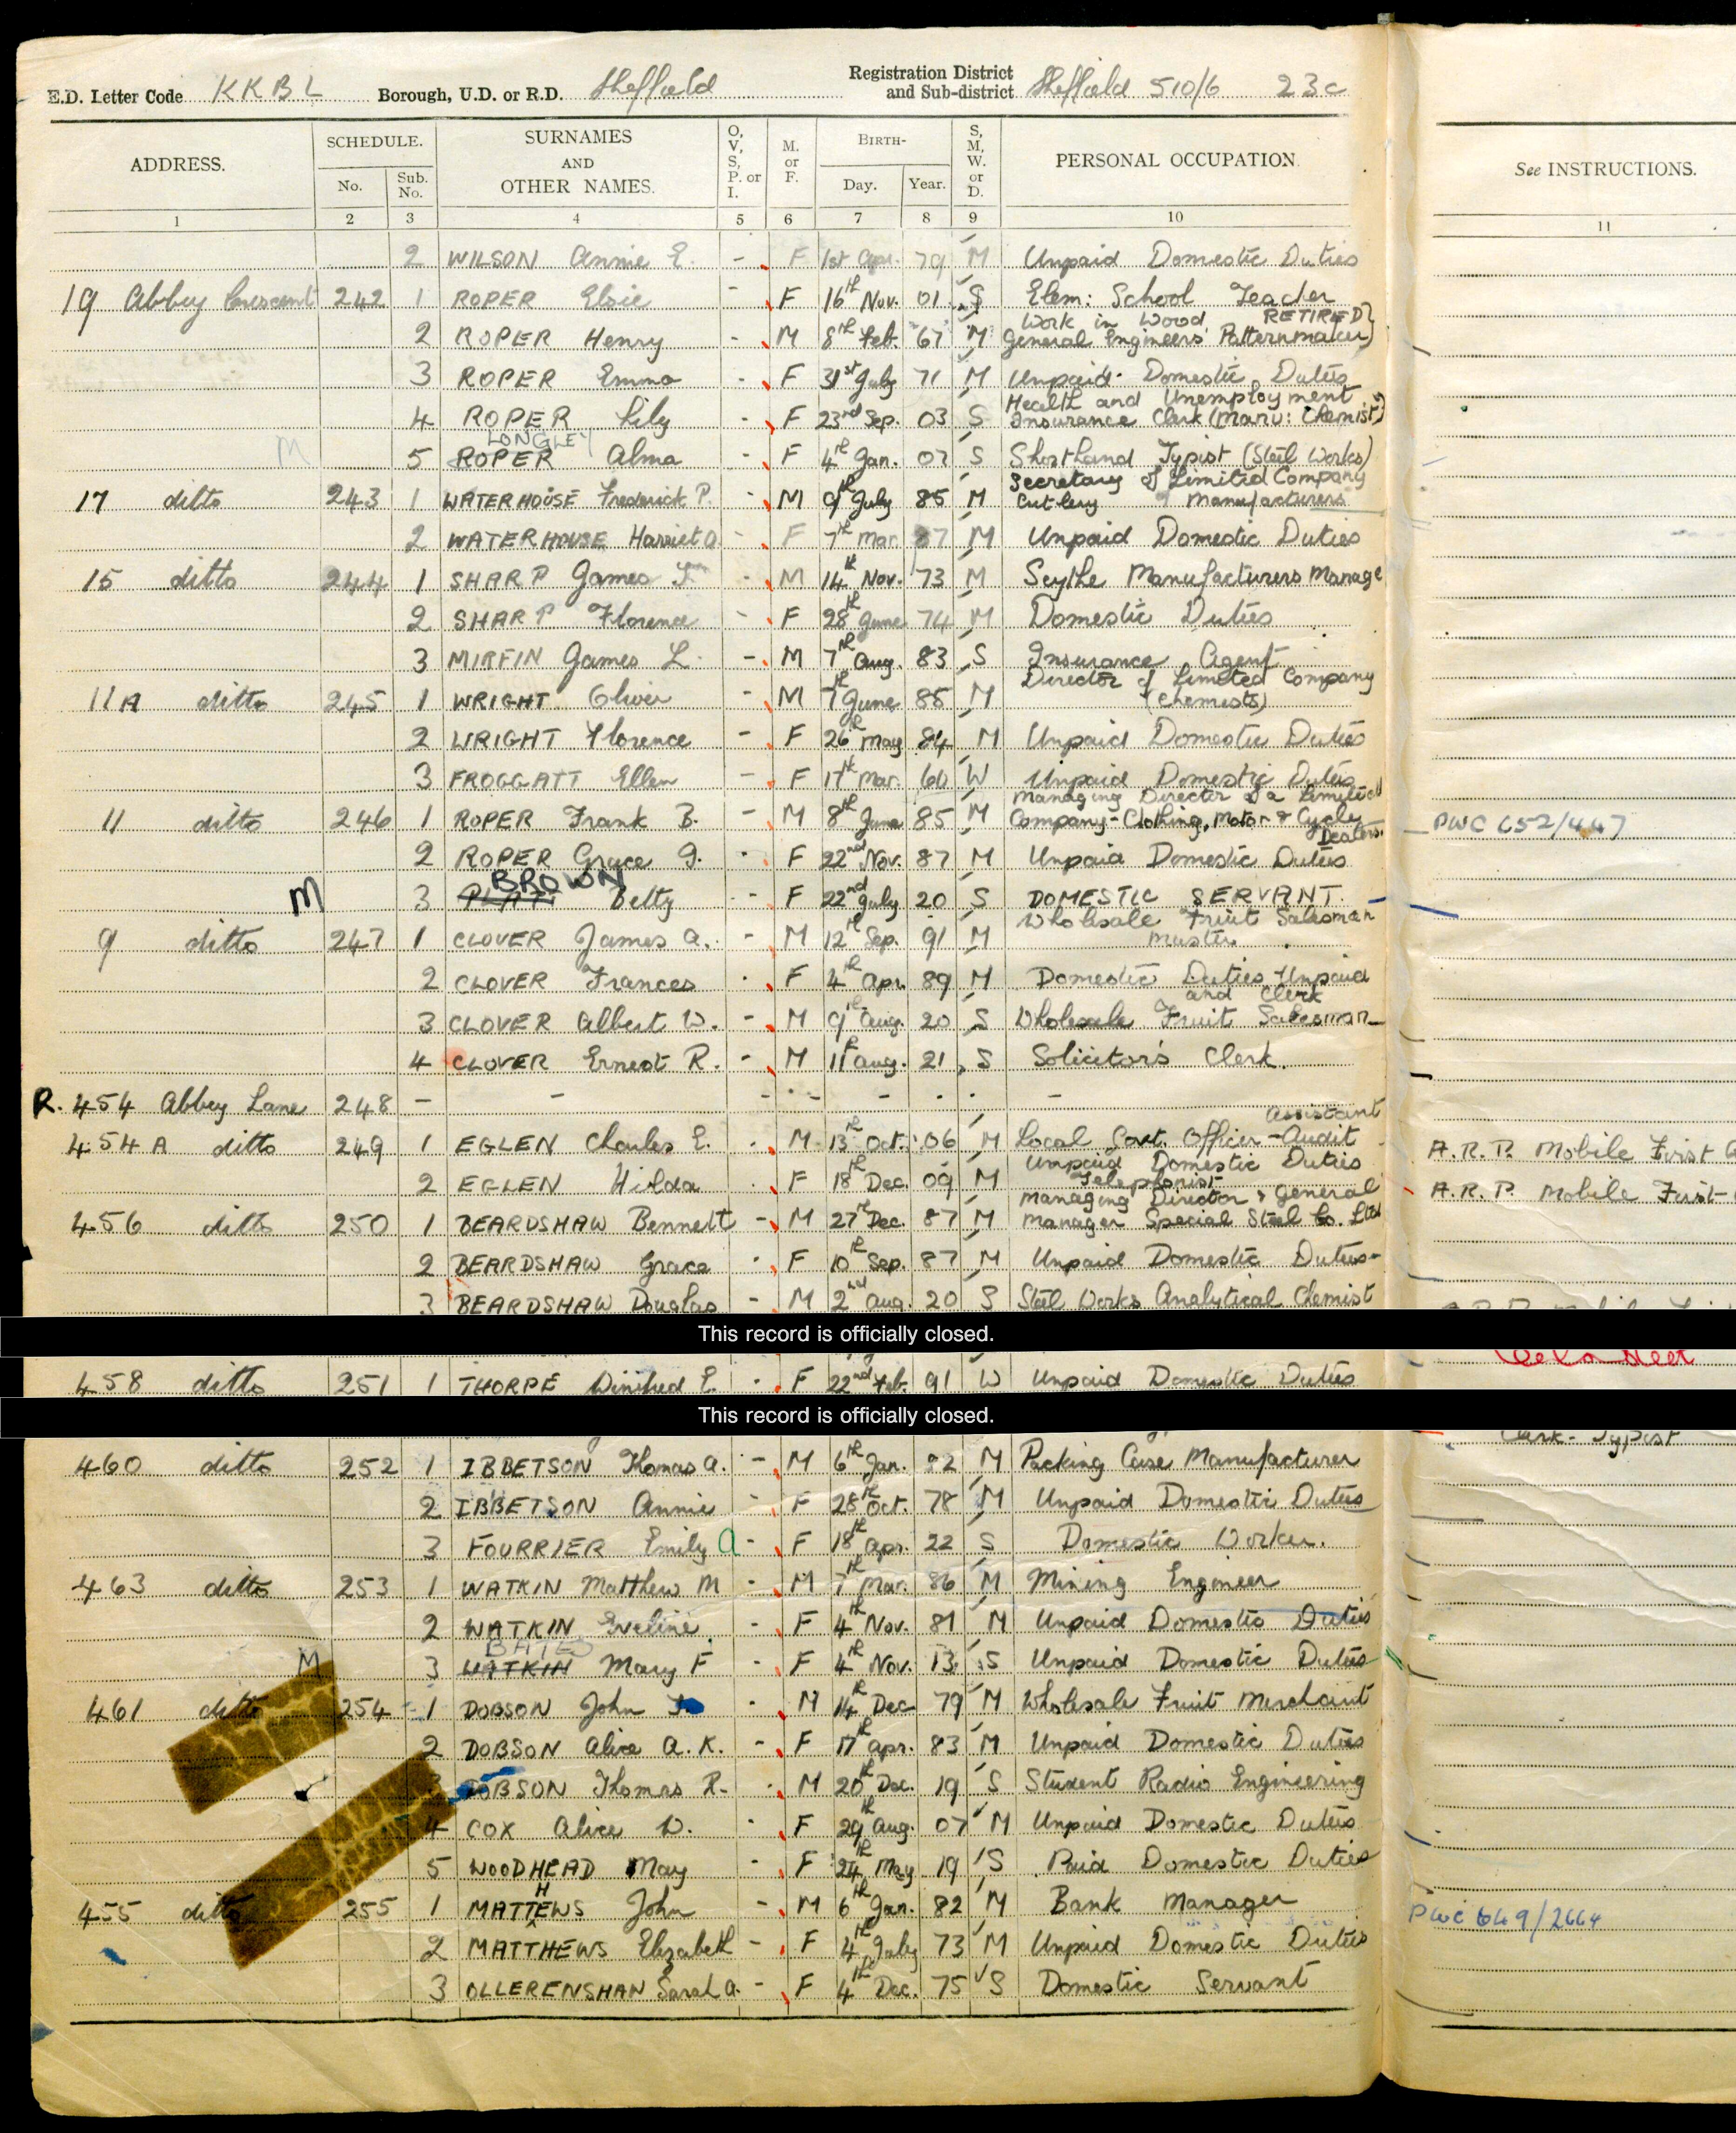 E.D. Letter Code KKBL Borough, U.D. or R.D. Sheffield Registration District and Sub-district Sheffield 510/6 23c
ADDRESS. SCHEDULE. No. Sub. No. SURNAMES AND OTHER NAMES. O, V, S, P. or I. M. or F. BIRTH- Day. Year. S, M, W. or D. PERSONAL OCCUPATION. See INSTRUCTIONS.
1 2 3 4 5 6 7 8 9 10 11
2 WILSON Annie E. - F 1st Apr. 79 M Unpaid Domestic Duties
19 Abbey Crescent 242 1 ROPER Elsie - F 16th Nov. 01 S Elem: School Teacher
2 ROPER Henry - M 8th Feb. 67 M Work in Wood RETIRED} General Engineers Patternmaker)
3 ROPER Emma - F 31st July 71 M Unpaid Domestic Duties
4 ROPER Lily - F 23rd Sep. 03 S Health and Unemployment Insurance Clerk (Manu: Chemist)
M LONGLEY
5 ROPER Alma - F 4th Jan. 07 S Shorthand Typist (Steel Works)
17 ditto 243 1 WATERHOUSE Frederick P. - M 9th July 85 M Secretary of Limited Company Cutlery Manufacturers
2 WATERHOUSE Harriet A - F 7th Mar. 87 M Unpaid Domestic Duties
15 ditto 244 1 SHARP James - M 14th Nov. 73 M Scythe Manufacturers Manage
2 SHARP Florence - F 28th June 74 M Domestic Duties
3 MIRFIN James L. - M 7th Aug. 83 S Insurance Agent
11A ditto 245 1 WRIGHT Oliver - M 7th June 85 M Director of Limited Company (Chemists)
2 WRIGHT Florence - F 26th May 84 M Unpaid Domestic Duties
3 FROGGATT Ellen - F 17th Mar. 60 W Unpaid Domestic Duties
11 ditto 246 1 ROPER Frank B. - M 8th June 85 M Managing Director of a Limited Company - Clothing, Motor & Cycle Dealers. PWC 652/447
2 ROPER Grace G. - F 22nd Nov. 87 M Unpaid Domestic Duties
M BROWN
3 PLATT Betty - F 22nd July 20 S DOMESTIC SERVANT.
9 ditto 247 1 CLOVER James A. - M 12th Sep. 91 M Wholesale Fruit Salesman Master.
2 CLOVER Frances - F 4th Apr. 89 M Domestic Duties Unpaid
3 CLOVER Albert W. - M 9th Aug. 20 S Wholesale Fruit Salesman and Clerk
4 CLOVER Ernest R. - M 11th Aug. 21 S Solicitor's Clerk.
R. 454 Abbey Lane 248 - - - - - - - -
454A ditto 249 1 EGLEN Charles E. - M 13th Oct. 06 M Local Govt. Officer - Audit Assistant A.R.P. Mobile First
2 EGLEN Hilda - F 18th Dec. 09 M Unpaid Domestic Duties Telephonist A.R.P. Mobile First-
456 ditto 250 1 BEARDSHAW Bennett - M 27th Dec. 87 M Managing Director & General Manager Special Steel Co. Ltd
2 BEARDSHAW Grace - F 10th Sep. 87 M Unpaid Domestic Duties
3 BEARDSHAW Douglas - M 2nd Aug. 20 S Steel Works Analytical Chemist
This record is officially closed.
458 ditto 251 1 THORPE Winifred E. - F 22nd Feb. 91 W Unpaid Domestic Duties
This record is officially closed.
Clerk-Typist
460 ditto 252 1 IBBETSON Thomas A. - M 6th Jan. 82 M Packing Case Manufacturer
2 IBBETSON Annie - F 28th Oct. 78 M Unpaid Domestic Duties
3 FOURRIER Emily A - F 18th Apr. 22 S Domestic Worker.
463 ditto 253 1 WATKIN Matthew M - M 7th Mar. 86 M Mining Engineer
2 WATKIN Eveline - F 4th Nov. 81 M Unpaid Domestic Duties
M BATES
3 WATKIN Mary F - F 4th Nov. 13 S Unpaid Domestic Duties
461 ditto 254 1 DOBSON John - M 14th Dec 79 M Wholesale Fruit Merchant
2 DOBSON Alice A. K. - F 17th Apr. 83 M Unpaid Domestic Duties
3 DOBSON Thomas R - M 20th Dec. 19 S Student Radio Engineering
4 COX Alice W. - F 29th Aug. 07 M Unpaid Domestic Duties
5 WOODHEAD May - F 24th May 19 S Paid Domestic Duties
455 ditto 255 1 MATTHEWS John - M 6th Jan. 82 M Bank Manager PWC 649/2664
2 MATTHEWS Elizabeth - F 4th July 73 M Unpaid Domestic Duties
3 OLLERENSHAW Sarah A. - F 4th Dec. 75 S Domestic Servant